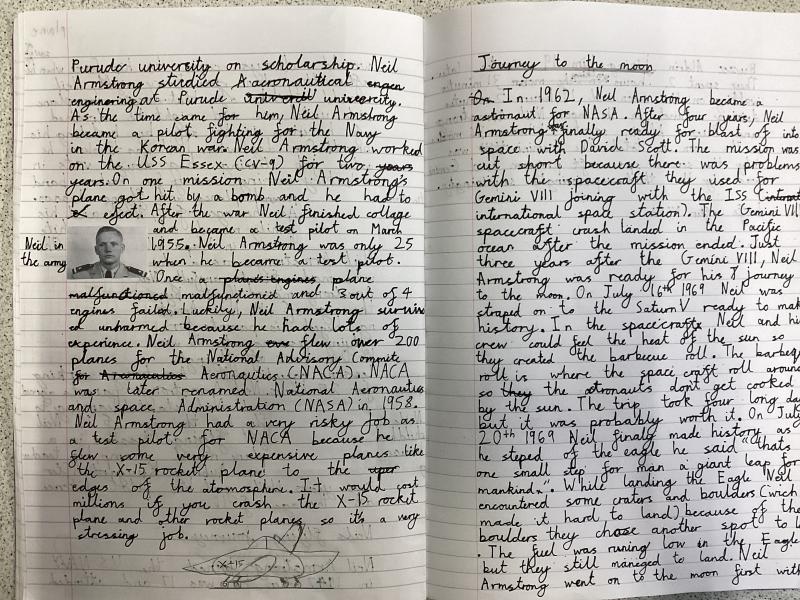 Purude university on scholarship. Neil
Armstrong studied Aaeronautical engen
enginering at Purude univercil univercity.
As the time came for him, Neil Armstrong
became a pilot fighting for the Navy
in the Korean war. Neil Armstrong worked
on the USS Essex (CV-9) for two years
years. On one mission Neil Armstrong's
plane got hit by a bomb and he had to
eject. After the war Neil finished collage
and became a test pilot on March
Neil in
the army
1955. Neil Armstrong was only 25
when he became a test pilot.
Once a planes engines, plane
malfunctioned malfunctioned and 3 out of 4
engines failed. Luckily, Neil Armstrong surviv
ed unharmed because he had lots of
experience. Neil Armstrong flew over 200
planes for the National Advisory Commite
for Aeronautics (NACA). NACA
was later renamed National Aeronautics
and space Administration (NASA) in 1958.
Neil Armstrong had a very risky job as
a test pilot for NACA because he
flew some very expensive planes like
the X-15 rocket plane to the uper
edges of the atomosphere. It would cost
millions if you crash the X-15 rocket
plane and other rocket planes, so it's a very
stressing job.
X-15
Journey to the moon
On In 1962, Neil Armstrong became a
astronaut for NASA. After four years, Neil
Armstrong finally ready for blast of into
space with David Scott. The mission was
cut short because there was problems
with the spacecraft they used for
Gemini VIII joining with the ISS (
international space station). The Gemini VIII
spacecraft crash landed in the Pacific
ocean after the mission ended. Just
three years after the Gemini VIII, Neil
Armstrong was ready for his journey
to the moon. On July 16th 1969 Neil was
straped on to the Saturn V ready to mak
history. In the spacecrafts Neil and his
crew could feel the heat of the sun so
they created the barbecue roll. The barbequ
roll is where the space craft roll around
so they the astronauts dont get cooked
by the sun. The trip took four long day
but it was probably worth it. On July
20th 1969 Neil finaly made history as
he steped of the eagle he said "thats
one small step for man a giant leap for
mankind". While landing the Eagle Neil
encountered some craters and boulders (wich
made it hard to land) because of the
boulders they chose another spot to l
. The fuel was runing low in the Eagle
but they still maneged to land. Neil
Armstrong went on to the moon first with